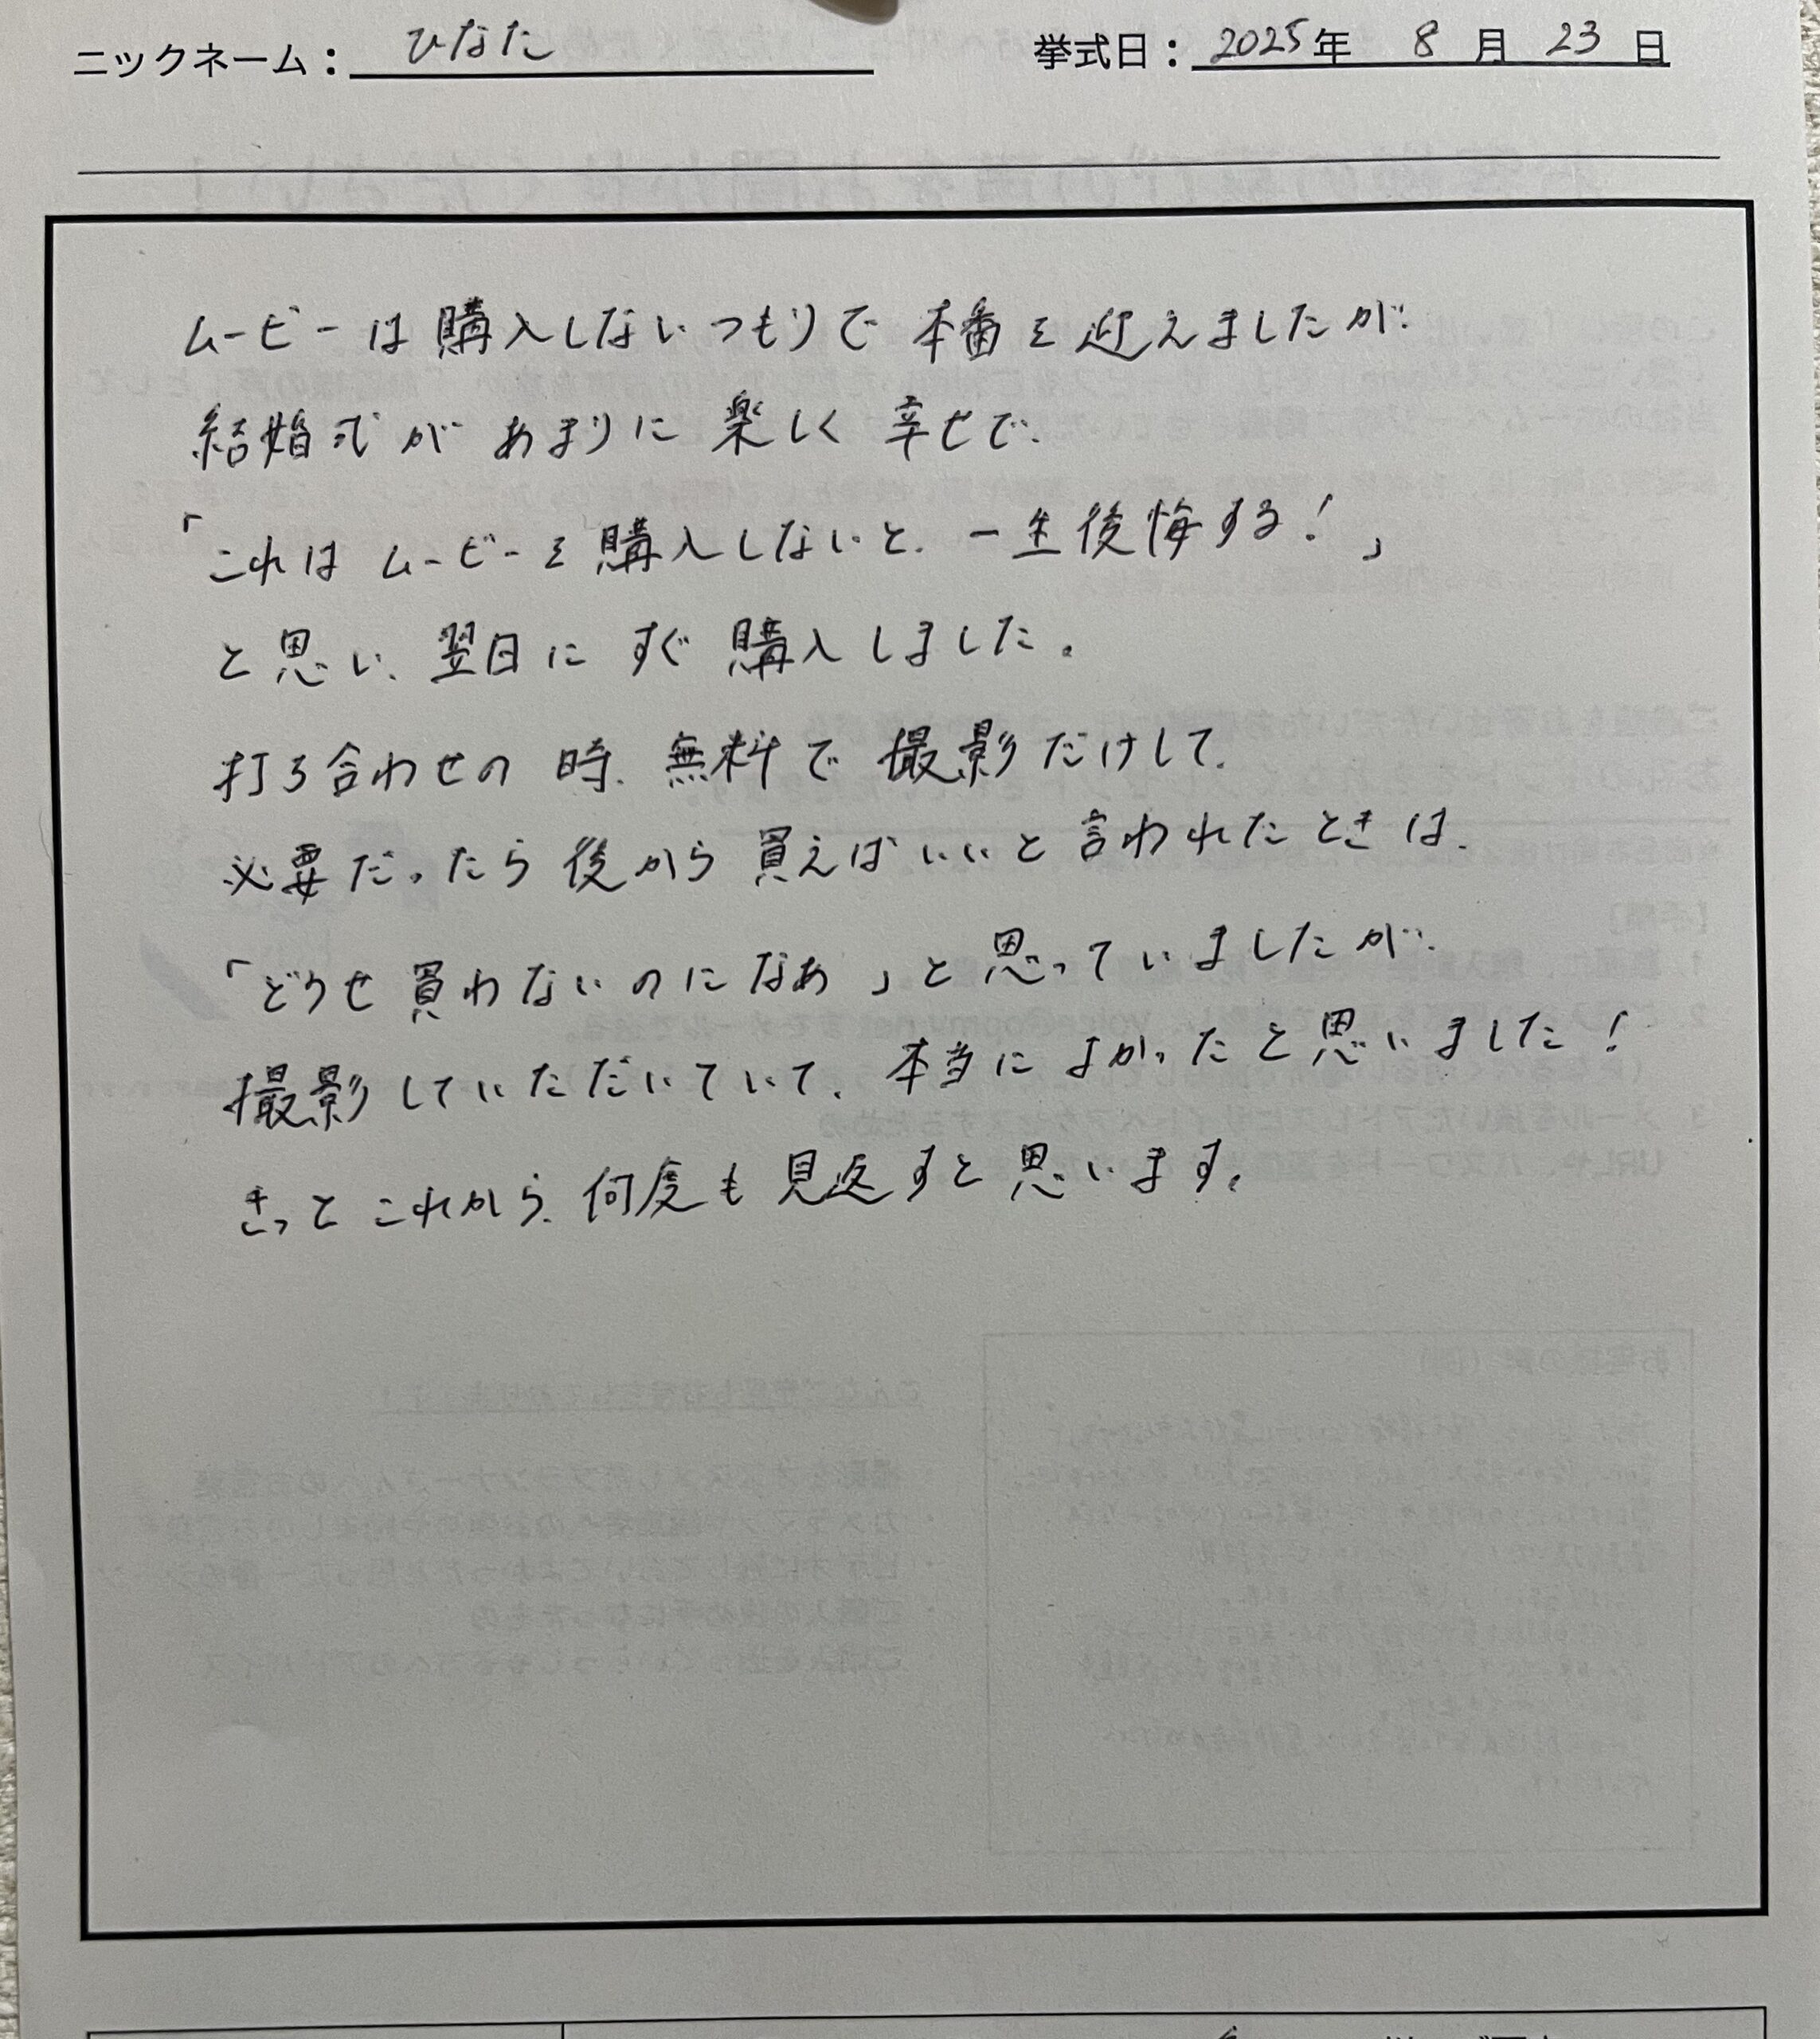 ニックネーム：ひなた　挙式日：2025年 8月 23日
ムービーは購入しないつもりで本番を迎えましたが、
結婚式があまりに楽しく幸せで、
「これはムービーを購入しないと、一生後悔する！」
と思い、翌日にすぐ購入しました。
打ち合わせの時、無料で撮影だけして、
必要だったら後から買えばいいと言われたときは、
「どうせ買わないのになあ」と思っていましたが、
撮影していただいていて、本当によかったと思いました！
きっとこれから、何度も見返すと思います。